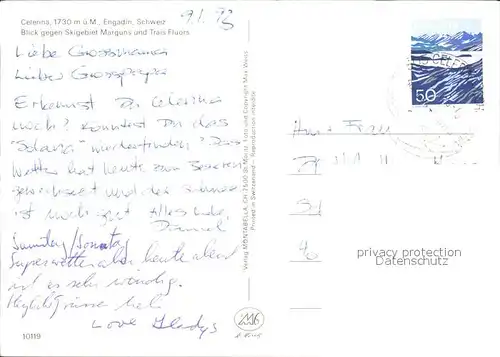 Celerina, 1730 m ü. M., Engadin, Schweiz
Blick gegen Skigebiet Marguns und Trais Fluors
9.1.93
Liebe Grossmama
Lieber Grosspapa
Erkennst Du Celerina
noch? Könntest Du das
wiederfinden? Das
Wetter hat heute zum Besseren
gewechselt und der Schnee
ist noch gut. Alles Liebe,
Samstag/Sonntag
Superwetter aber heute abend
ist es sehr windig.
Love Gladys
10119
Verlag MONTABELLA, CH-7500 St. Moritz Foto und Copyright Max Weiss
Printed in Switzerland – Reproduction interdite
50
CELERINA
privacy protection
Datenschutz